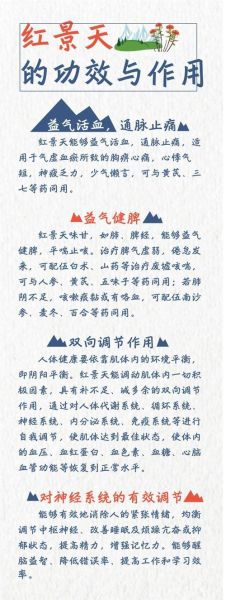 红景天
的功效与作用
益气活血，通脉止痛
红景天能够益气活血，通脉止痛，适
用于气虚血瘀所致的胸痹心痛，心悸气
短，神疲乏力，少气懒言，可与黄芪、三
七等药同用。
益气健脾
红景天味甘，如肺、脾经，能够益气
健脾，平喘止咳。治疗脾气虚弱，倦怠发
来，可配伍白术、山药等治疗废墟咳喘，
可与人参、黄芪、五味子等药同用；若肺
阴不足，咳嗽痰黏或有咯血，可配伍南沙
参、麦冬、百合等药同用。
双向调节作用
人体健康要依靠肌体内的环境平衡，
即阴阳平衡。红景天能调动肌体内一切积
极因素，具有补不足、减多余的双向调节
作用，通过对人体代谢系统、循环系统、
神经系统、内分泌系统、免疫系统等进行
自我调节，使肌体达到最佳状态，使体内
的血压、血红蛋白、血色素、血糖、心脑
血管功能等恢复到正常水平。
对神经系统的有效调节
能够有效地消除人的紧张情绪，均衡
调节中枢神经、改善睡眠及烦躁亢奋或抑
郁状态，提高精力，增强记忆力。能够醒
脑益智、降低错误率、提高工作和学习效
率。